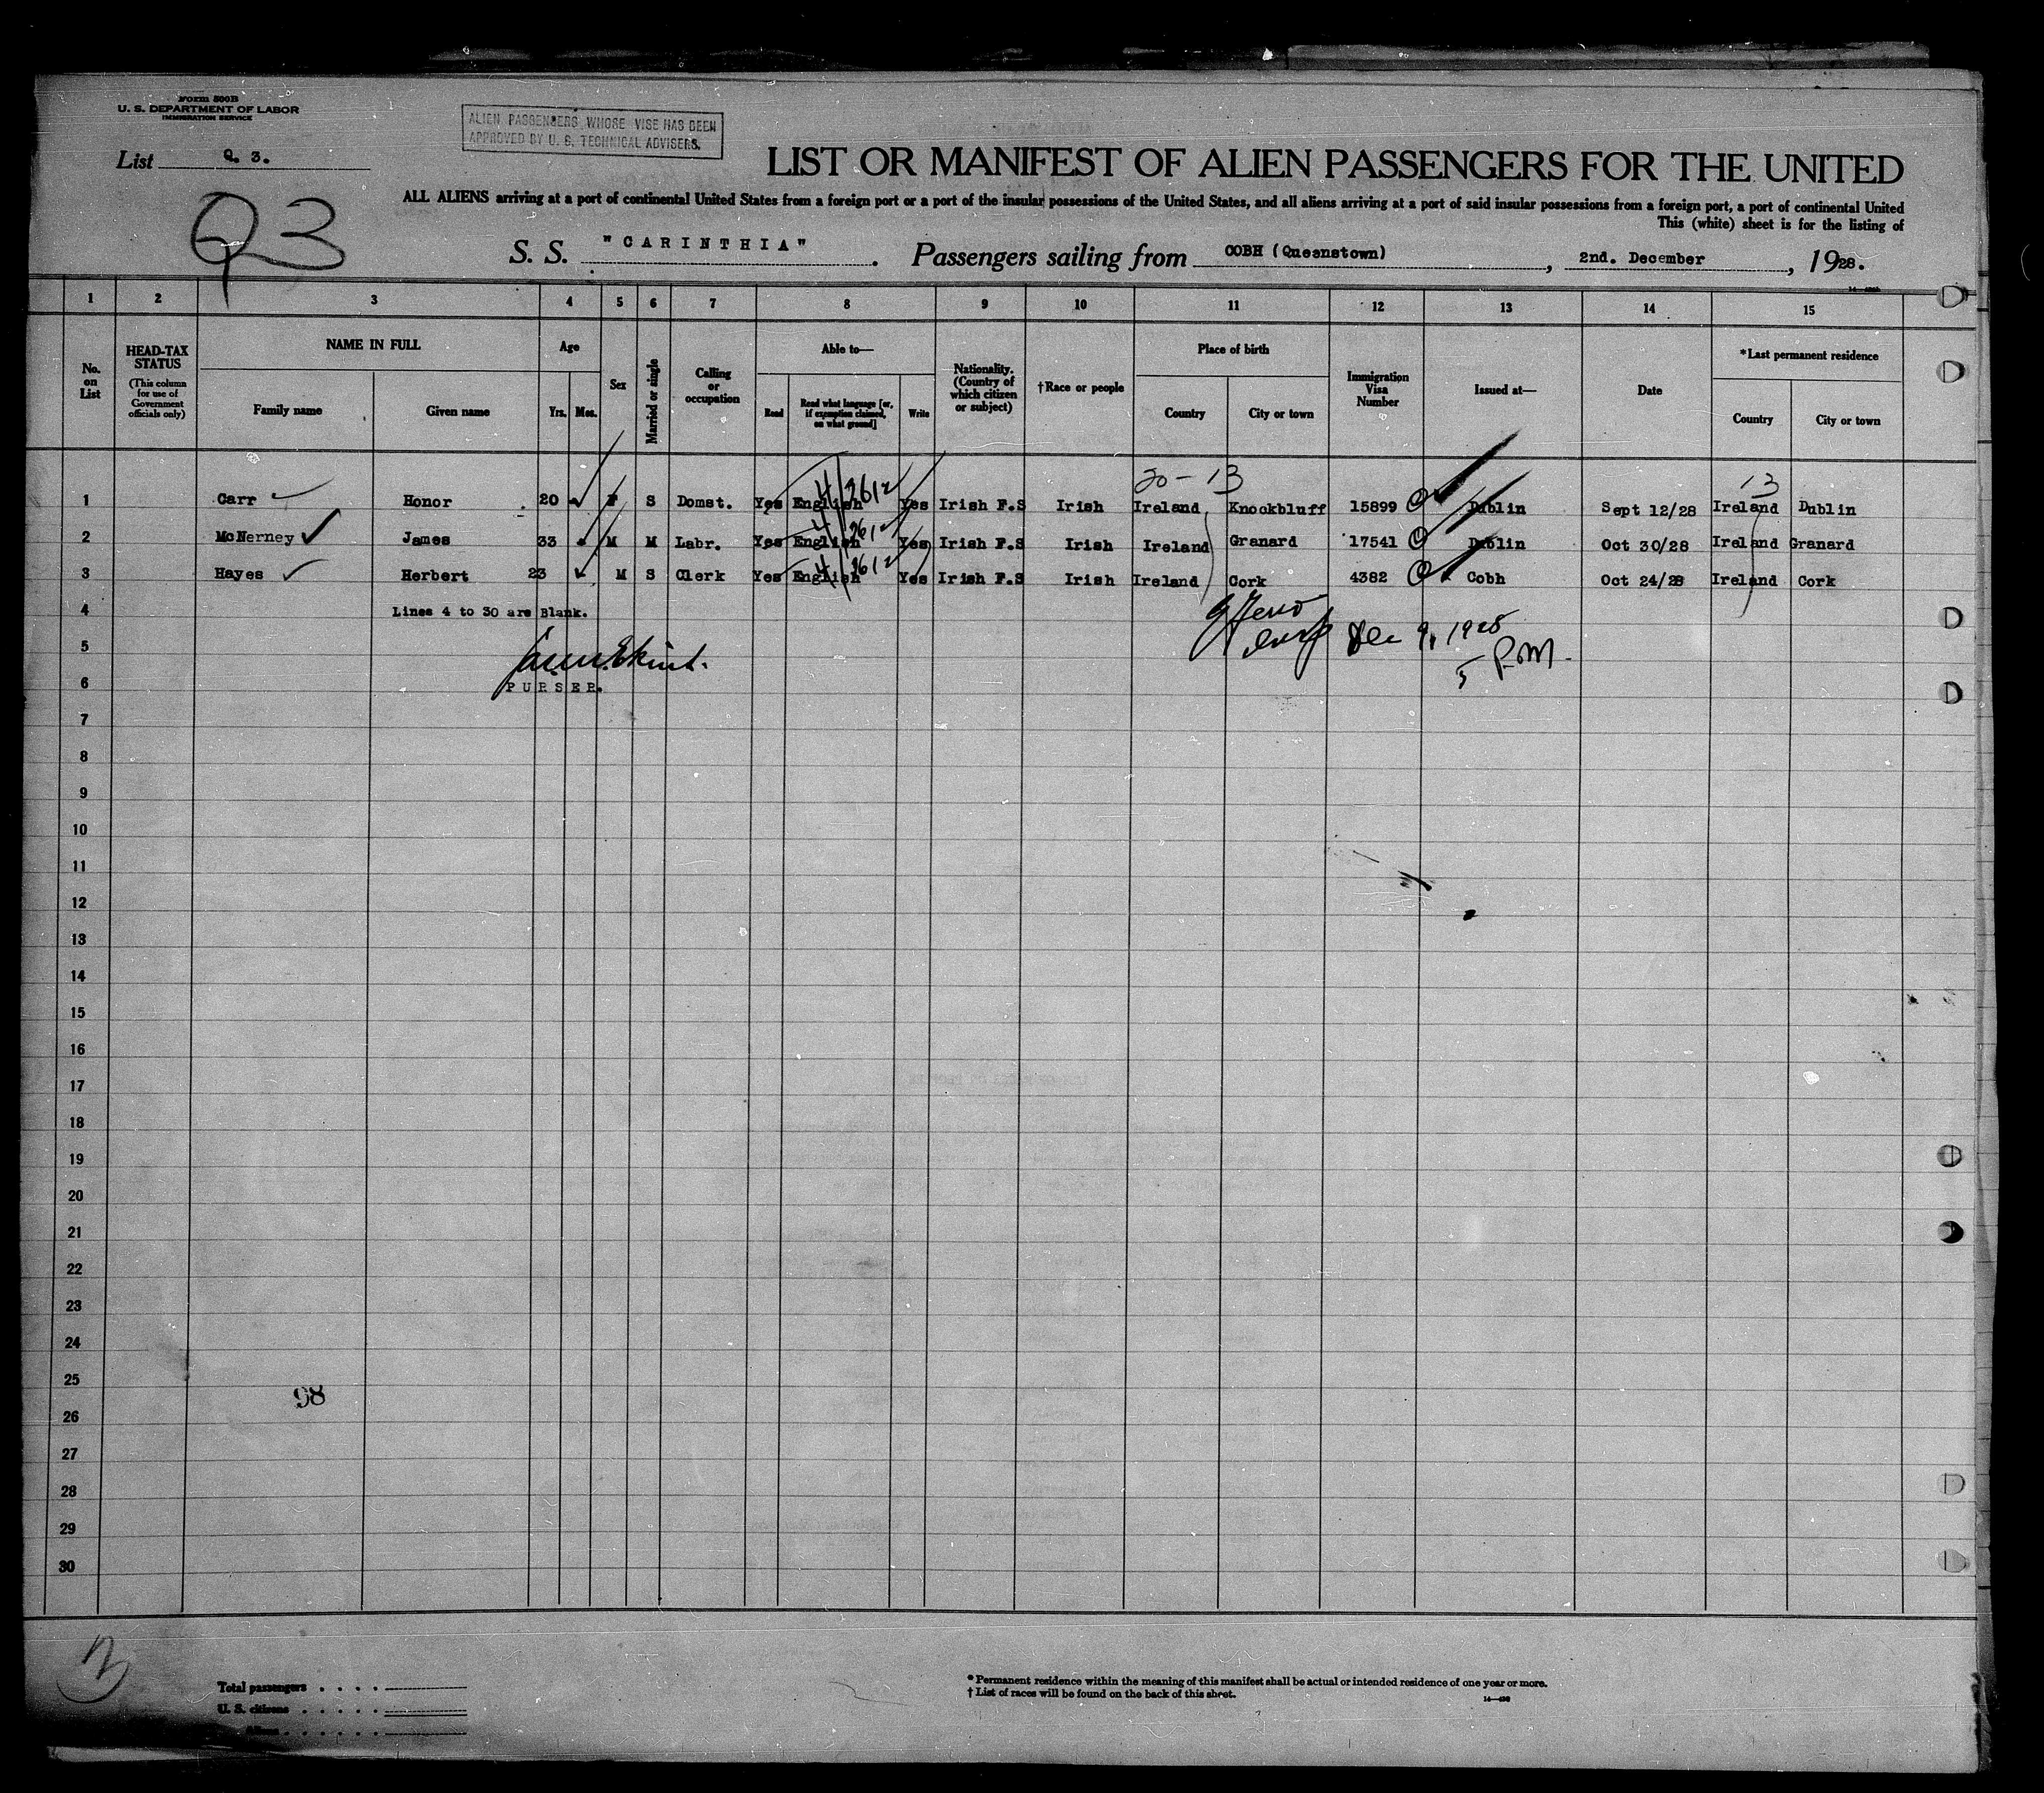 Form 500B
U. S. DEPARTMENT OF LABOR
IMMIGRATION SERVICE
ALIEN PASSENGERS WHOSE VISE HAS BEEN
APPROVED BY U. S. TECHNICAL ADVISERS.
List Q. 3.
Q3
LIST OR MANIFEST OF ALIEN PASSENGERS FOR THE UNITED
ALL ALIENS arriving at a port of continental United States from a foreign port or a port of the insular possessions of the United States, and all aliens arriving at a port of said insular possessions from a foreign port, a port of continental United
This (white) sheet is for the listing of
S. S. "CARINTHIA". Passengers sailing from COBH (Queenstown), 2nd. December, 1928.
1 2 3 4 5 6 7 8 9 10 11 12 13 14 15
No. on List
HEAD-TAX STATUS (This column for use of Government officials only)
NAME IN FULL
Family name Given name
Age
Yrs. Mos.
Sex
Married or single
Calling or occupation
Able to—
Read Read what language [or, if exemption claimed, on what ground] Write
Nationality. (Country of which citizen or subject)
†Race or people
Place of birth
Country City or town
Immigration Visa Number
Issued at—
Date
*Last permanent residence
Country City or town
20 - 13 13
1 Carr Honor 20 F S Domst. Yes English 4/2612 Yes Irish F.S Irish Ireland Knockbluff 15899 Dublin Sept 12/28 Ireland Dublin
2 McNerney James 33 M M Labr. Yes English 4/2612 Yes Irish F.S Irish Ireland Granard 17541 Dublin Oct 30/28 Ireland Granard
3 Hayes Herbert 23 M S Clerk Yes English 4/2612 Yes Irish F.S Irish Ireland Cork 4382 Cobh Oct 24/28 Ireland Cork
4 Lines 4 to 30 are Blank.
5 Dec 9, 1928
5 P.M.
6 PURSER.
7
8
9
10
11
12
13
14
15
16
17
18
19
20
21
22
23
24
25
98
26
27
28
29
30
Total passengers
U. S. citizens
Aliens
* Permanent residence within the meaning of this manifest shall be actual or intended residence of one year or more.
† List of races will be found on the back of this sheet.